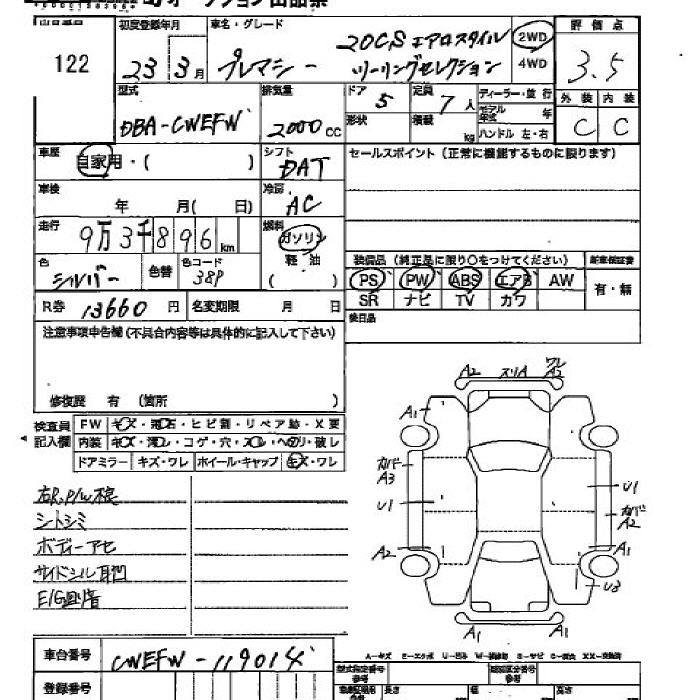 出品番号 初度登録年月 車名・グレード 2WD 4WD 評価点
122 23年 3月 プレマシー 20CS エアロスタイル ツーリングセレクション 3.5
型式 排気量 ドア 5 定員 7人 ディーラー・並行 外装 内装
DBA-CWEFW 2000cc 形状 積載 kg モデル年式 年 C C
ハンドル 左・右
車歴 自家用・( ) シフト DAT セールスポイント (正常に機能するものに限ります)
車検 年 月( 日) 冷房 AC
走行 9万3千896km 燃料 ガソリン 軽油 ( )
色 シルバー 色替 色コード 38P 装備品 (純正品に限り○をつけてください) 新車保証書
PS PW ABS エアB AW 有・無
R券 13660円 名変期限 月 日 SR ナビ TV カワ
注意事項申告欄 (不具合内容等は具体的に記入して下さい) 後日品
修復歴 有 (箇所 )
検査員記入欄 FW キズ・飛石・ヒビ割・リペア跡・X要
内装 キズ・汚レ・コゲ・穴・スレ・ヘタリ・破レ
ドアミラー キズ・ワレ ホイール・キャップ キズ・ワレ
A2 スリA ワレ A2
A1
カバー A3
U1 U1
カバー A2
A2 A1
U3
A1 A1
シトシミ
ボディーアセ
サイドシル凹
車台番号 CWEFW-119014
登録番号
A-キズ E-エクボ U-凹ミ W-補修跡 S-サビ C-腐食 XX-交換済
型式指定番号 参考 類別区分番号 参考
長さ 幅 高さ